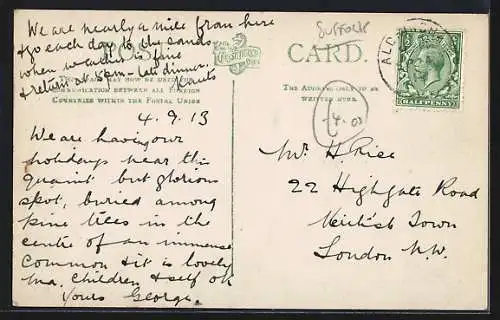 We are nearly a mile from here
& go each day to the sands
when weather is fine
& return at 5pm - late dinner.
POST CARD.
SUFFOLK
THE SPACE BELOW MAY NOW BE USED FOR
COMMUNICATION BETWEEN ALL FOREIGN
COUNTRIES WITHIN THE POSTAL UNION
THE ADDRESS ONLY TO BE
WRITTEN HERE.
HALFPENNY
4.9.13
We are having our
holidays near this
quaint but glorious
spot, buried among
pine trees in the
centre of an immense
Common & it is lovely
Ma, Children & self ok
Yours George.
4.00
Mr H. Rice
22 Highgate Road
Kentish Town
London N.W.